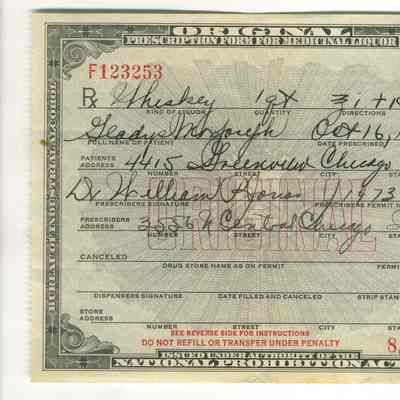 ORIGINAL
PRESCRIPTION FORM FOR MEDICINAL LIQUOR
F123253
Rx Whiskey 1 qt
KIND OF LIQUOR QUANTITY DIRECTIONS
Gladys Oct 16,
FULL NAME OF PATIENT DATE PRESCRIBED
PATIENTS ADDRESS 4415 Greenview Chicago
NUMBER STREET CITY STATE
Dr William 11973
PRESCRIBERS SIGNATURE PRESCRIBERS PERMIT
PRESCRIBERS ADDRESS 3556 N Central Chicago
NUMBER STREET CITY
ORIGINAL
CANCELED
DRUG STORE NAME AS ON PERMIT PERMIT
DISPENSERS SIGNATURE DATE FILLED AND CANCELED STRIP STAM
STORE ADDRESS
NUMBER STREET CITY STA
SEE REVERSE SIDE FOR INSTRUCTIONS
DO NOT REFILL OR TRANSFER UNDER PENALTY 8
ISSUED UNDER AUTHORITY OF THE
NATIONAL PROHIBITION AC
BUREAU OF INDUSTRIAL ALCOHOL